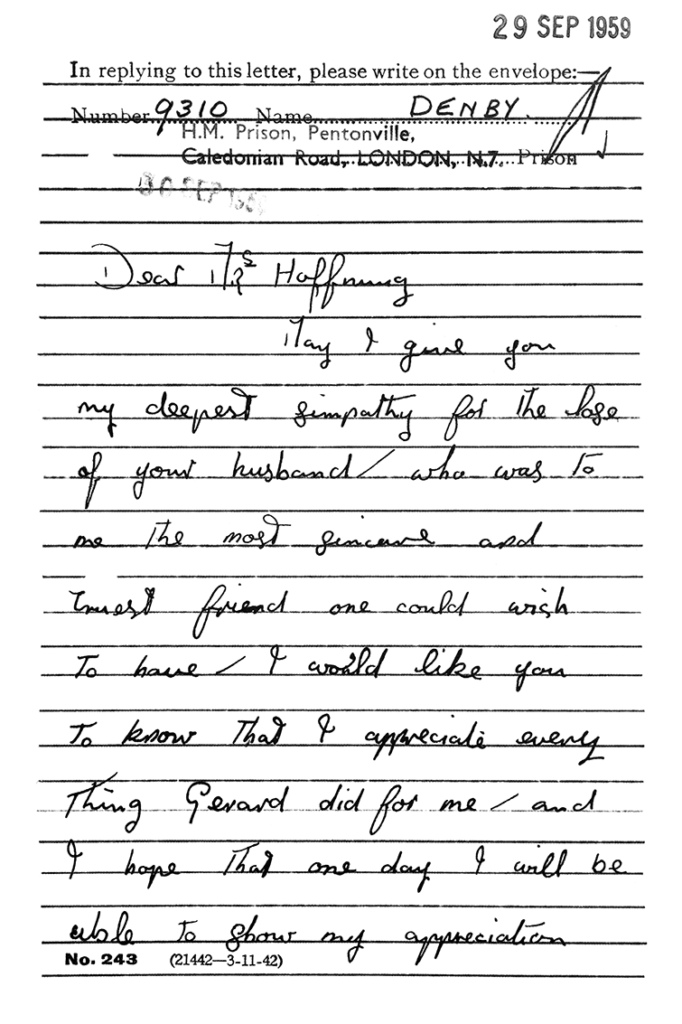 29 SEP 1959
In replying to this letter, please write on the envelope:—
Number 9310 Name DENBY
H.M. Prison, Pentonville,
Caledonian Road, LONDON, N.7. Prison
30 SEP
Dear Mrs Hoffnung
May I give you
my deepest simpathy for the lose
of your husband / who was to
me the most sincere and
truest friend one could wish
To have / I would like you
To know That I appreciate every
Thing Gerard did for me / and
I hope That one day I will be
able To show my appreciation
No. 243 (21442—3-11-42)